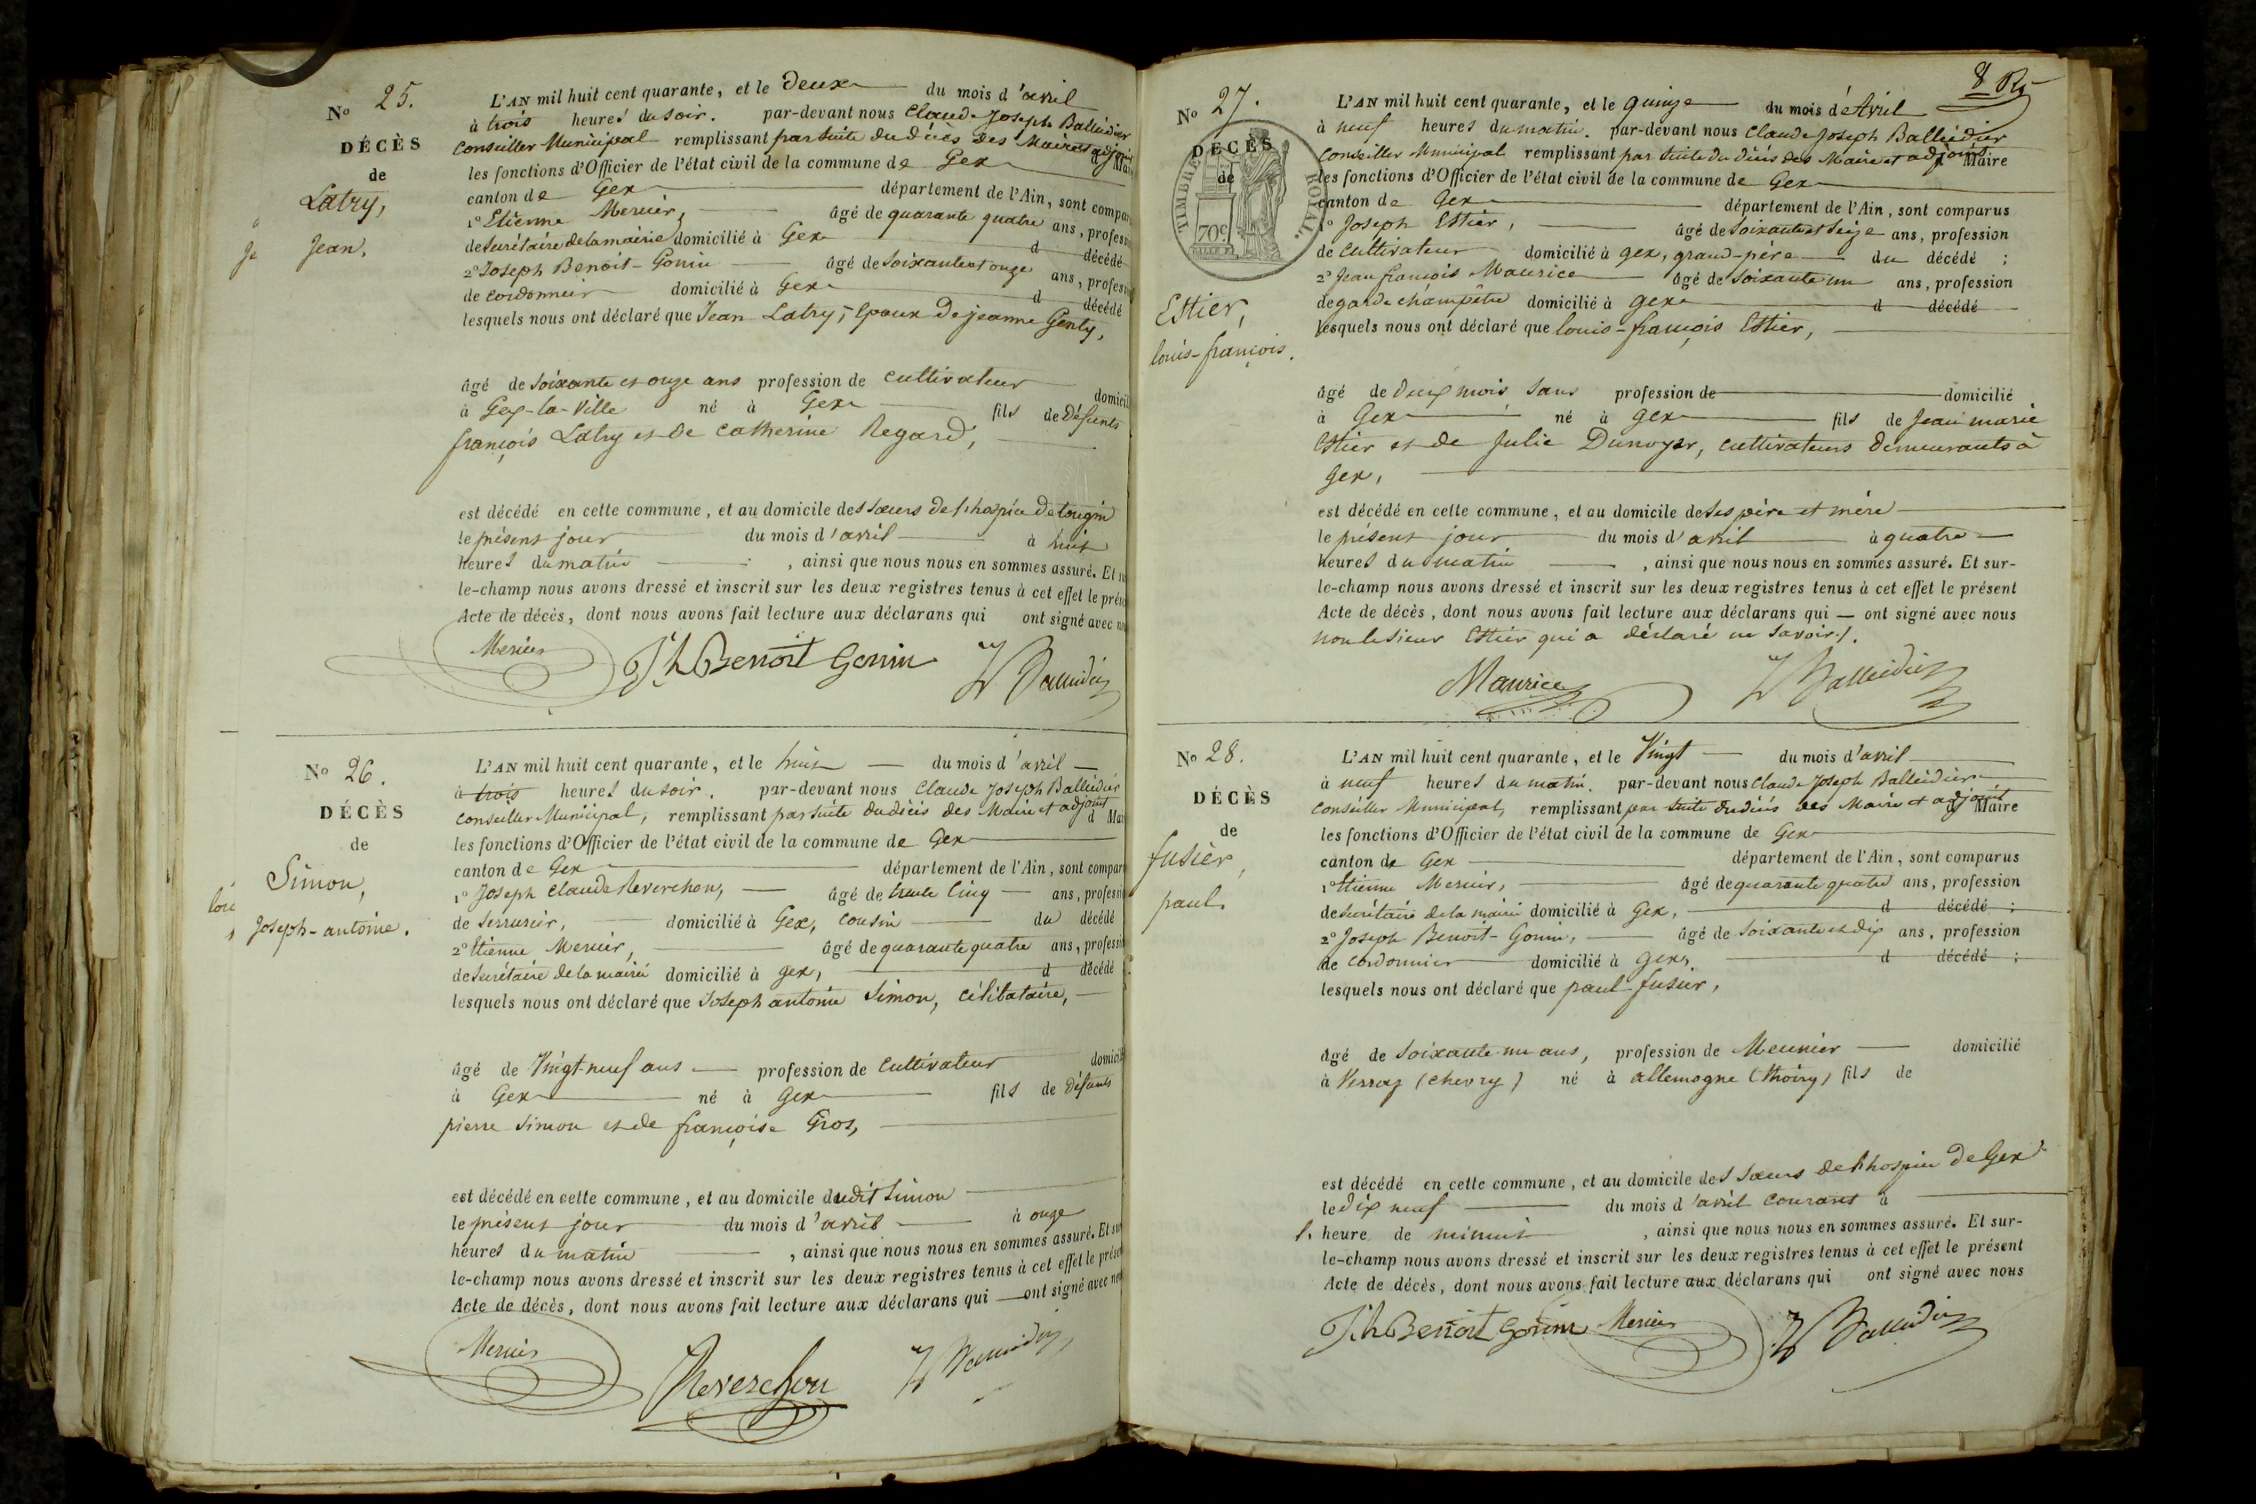 No 25.
DÉCÈS
de
Latry,
Jean.
L'AN mil huit cent quarante, et le deux du mois d'avril
à trois heures du soir. par-devant nous Claude Joseph Balleidier
Conseiller Municipal remplissant par suite du décès des Maire et adjoint
les fonctions d'Officier de l'état civil de la commune de Gex
canton de Gex département de l'Ain, sont compar
1° Etienne Mercier, âgé de quarante quatre ans, profess
de Secrétaire de la mairie domicilié à Gex d décédé
2° Joseph Benoit-Gonin âgé de Soixante et onze ans, profess
de cordonnier domicilié à Gex d décédé
lesquels nous ont déclaré que Jean Latry, Epoux de jeanne Genty,
âgé de Soixante et onze ans profession de cultivateur domicil
à Gex-la-Ville né à Gex fils de Défunts
françois Latry et de Catherine Regard,
est décédé en cette commune, et au domicile des sœurs de l'hospice de tougin
le présent jour du mois d'avril à huit
heures du matin , ainsi que nous nous en sommes assuré. Et su
le-champ nous avons dressé et inscrit sur les deux registres tenus à cet effet le prése
Acte de décès, dont nous avons fait lecture aux déclarans qui ont signé avec no
Mercier Jh Benoit Gonin Balleidier
No 26.
DÉCÈS
de
Simon,
Joseph-antoine.
L'AN mil huit cent quarante, et le huit du mois d'avril
à trois heures du soir. par-devant nous Claude Joseph Balleidier
Conseiller Municipal, remplissant par suite du décès des Maire et adjoint d Mai
les fonctions d'Officier de l'état civil de la commune de Gex
canton de Gex département de l'Ain, sont compar
1° Joseph Claude Reverchon, âgé de trente cinq ans, professi
de Serrurier, domicilié à Gex, cousin du décédé
2° Etienne Mercier, âgé de quarante quatre ans, professi
de Secrétaire de la mairie domicilié à gex, d décédé
lesquels nous ont déclaré que Joseph antoine Simon, célibataire,
âgé de Vingt-neuf ans profession de cultivateur domicil
à Gex né à Gex fils de Défunts
pierre Simon et de françoise Gros,
est décédé en cette commune, et au domicile dudit Simon
le présent jour du mois d'avril à onze
heures du matin , ainsi que nous nous en sommes assuré. Et su
le-champ nous avons dressé et inscrit sur les deux registres tenus à cet effet le prése
Acte de décès, dont nous avons fait lecture aux déclarans qui ont signé avec no
Mercier Reverchon Balleidier
8
No 27.
DÉCÈS
de
TIMBRE ROYAL.
70c
Estier,
louis-françois.
L'AN mil huit cent quarante, et le quinze du mois d'Avril
à neuf heures du matin. par-devant nous Claude Joseph Balleidier
Conseiller Municipal remplissant par suite du décès des Maire et adjoint Maire
les fonctions d'Officier de l'état civil de la commune de Gex
canton de Gex département de l'Ain, sont comparus
1° Joseph Estier, âgé de Soixante et Seize ans, profession
de Cultivateur domicilié à gex, grand-père du décédé ;
2° Jean françois Maurice âgé de Soixante un ans, profession
de garde champêtre domicilié à gex d décédé
lesquels nous ont déclaré que louis-françois Estier,
âgé de Deux mois sans profession de domicilié
à Gex né à Gex fils de Jean marie
Estier et de Julie Dunoyer, cultivateurs demeurants à
Gex,
est décédé en cette commune, et au domicile de ses père et mère
le présent jour du mois d'avril à quatre
heures du matin , ainsi que nous nous en sommes assuré. Et sur-
le-champ nous avons dressé et inscrit sur les deux registres tenus à cet effet le présent
Acte de décès, dont nous avons fait lecture aux déclarans qui ont signé avec nous
non le sieur Estier qui a déclaré ne savoir.
Maurice Balleidier
No 28.
DÉCÈS
de
fusier,
paul.
L'AN mil huit cent quarante, et le Vingt du mois d'avril
à neuf heures du matin. par-devant nous Claude Joseph Balleidier
Conseiller Municipal, remplissant par suite du décès des Maire et adjoint d Maire
les fonctions d'Officier de l'état civil de la commune de Gex
canton de Gex département de l'Ain, sont comparus
1° Etienne Mercier, âgé de quarante quatre ans, profession
de Secrétaire de la mairie domicilié à Gex, d décédé ;
2° Joseph Benoit-Gonin, âgé de Soixante et dix ans, profession
de cordonnier domicilié à Gex, d décédé ;
lesquels nous ont déclaré que paul fusier,
âgé de Soixante un ans, profession de Meunier domicilié
à Verraz (chevry) né à allemogne (thoiry) fils de
est décédé en cette commune, et au domicile des sœurs de l'hospice de Gex
le dix neuf du mois d'avril courant à
l. heure de minuit , ainsi que nous nous en sommes assuré. Et sur-
le-champ nous avons dressé et inscrit sur les deux registres tenus à cet effet le présent
Acte de décès, dont nous avons fait lecture aux déclarans qui ont signé avec nous
Jh Benoit Gonin Mercier Balleidier